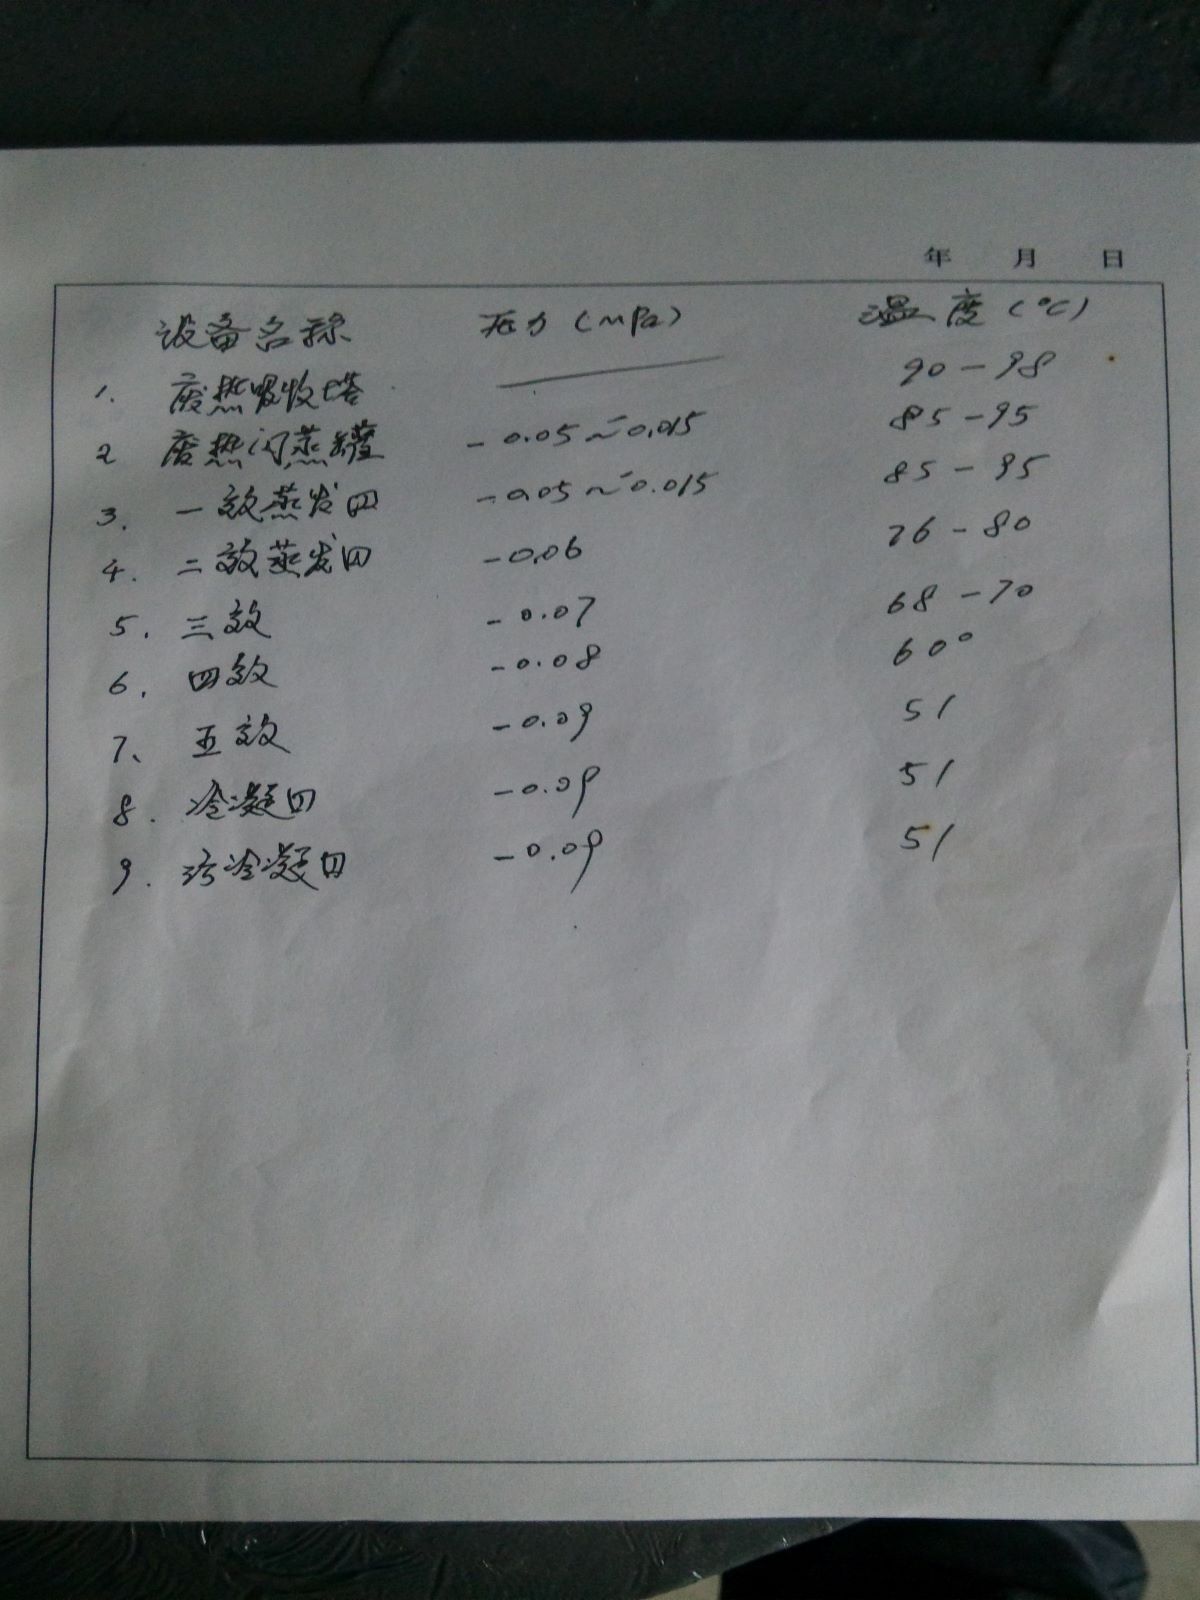 年 月 日
设备名称 压力(mPa) 温度(℃)
1. 废热吸收塔 —— 90-98
2 废热闪蒸罐 -0.05~-0.015 85-95
3. 一效蒸发四 -0.05~-0.015 85-95
4. 二效蒸发四 -0.06 76-80
5. 三效 -0.07 68-70
6. 四效 -0.08 60°
7、 五效 -0.09 51
8. 冷凝四 -0.09 51
9. 污冷凝四 -0.09 51